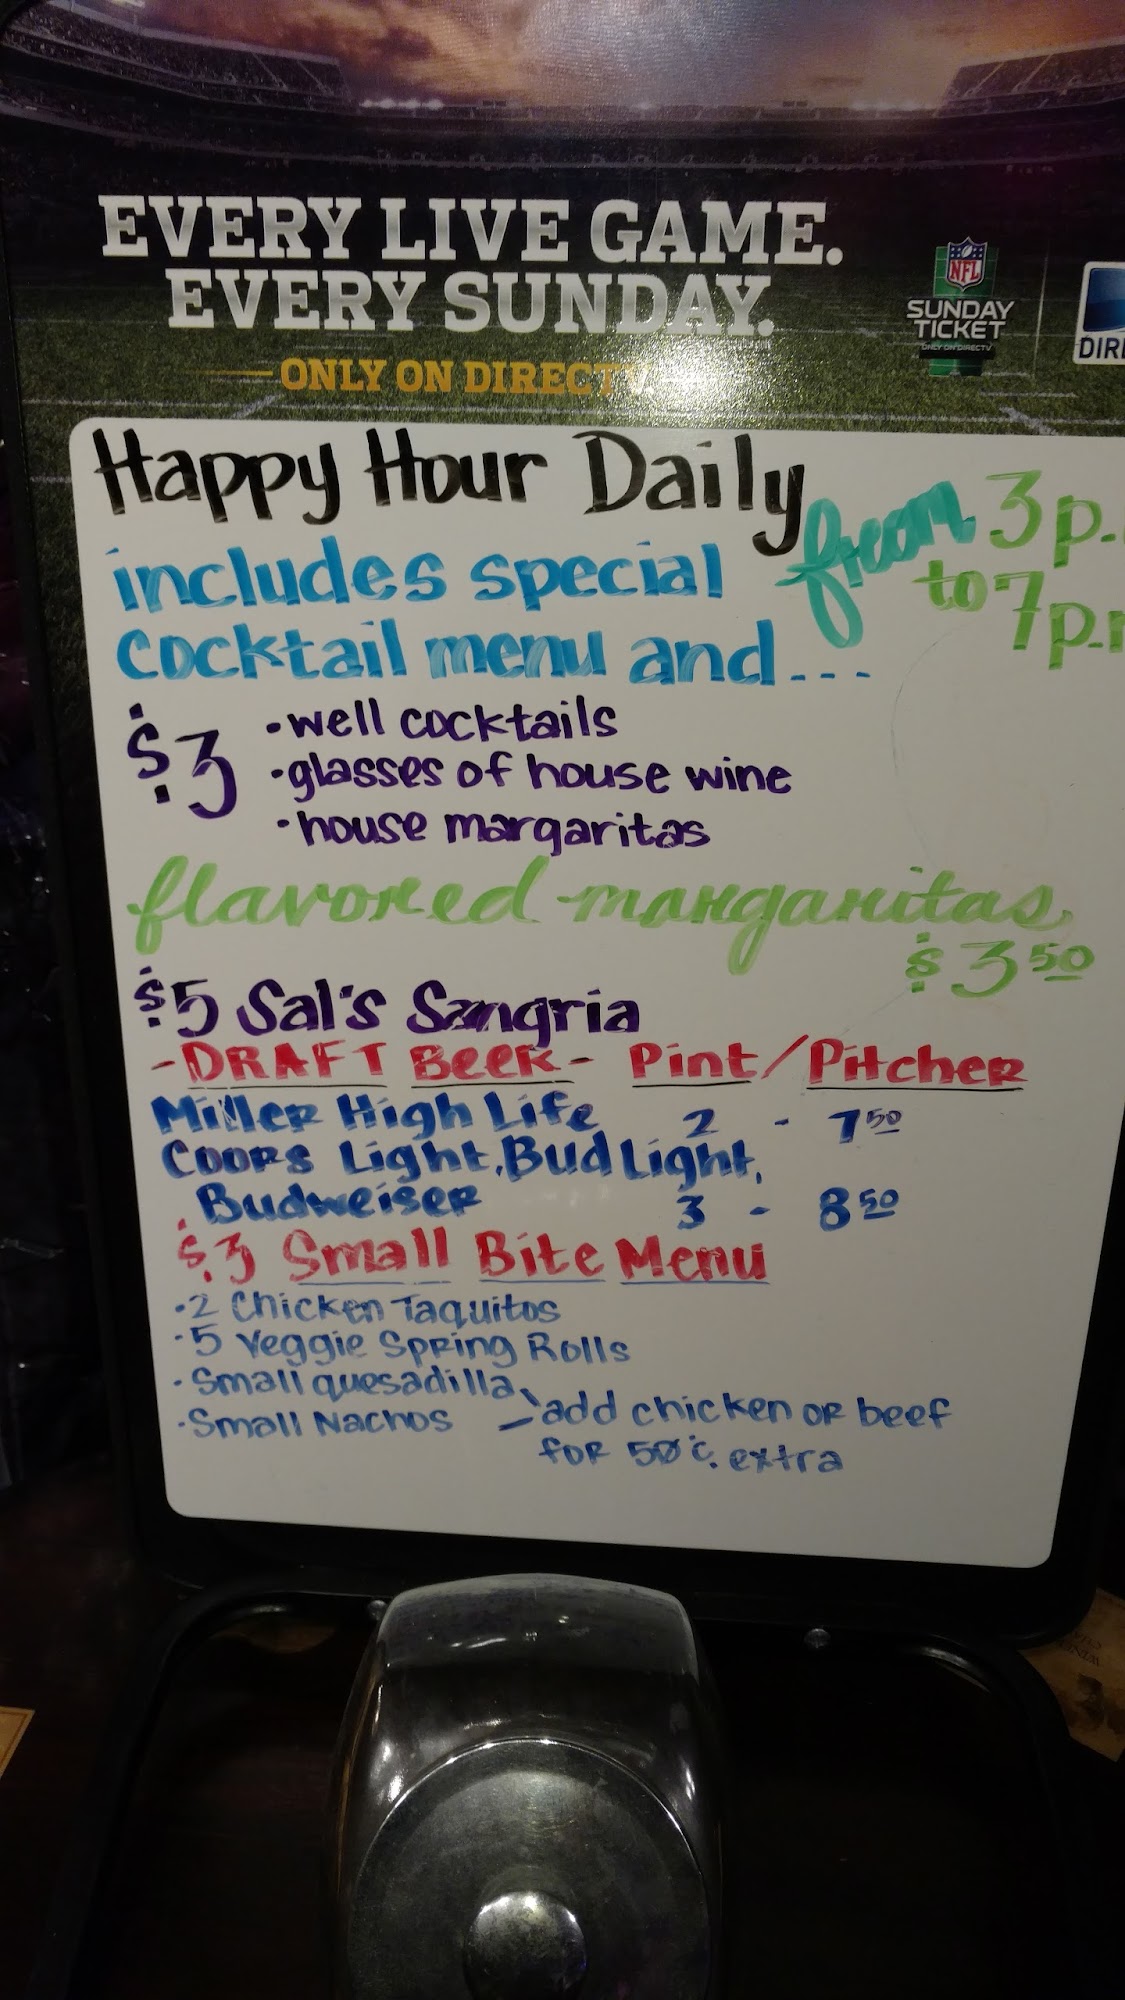 EVERY LIVE GAME.
EVERY SUNDAY.
ONLY ON DIRECTV
NFL
SUNDAY
TICKET
ONLY ON DIRECTV
DIRE
Happy Hour Daily
from 3p.
to 7p.
includes special
cocktail menu and...
$3 •well cocktails
•glasses of house wine
•house margaritas
flavored margaritas
$3 50
$5 Sal's Sangria
-DRAFT Beer- Pint/Pitcher
Miller High Life 2 - 7 50
Coors Light, Bud Light,
Budweiser 3 - 8 50
$3 Small Bite Menu
•2 Chicken Taquitos
•5 Veggie Spring Rolls
•Small quesadilla
•Small Nachos
add chicken or beef
for 50¢ extra